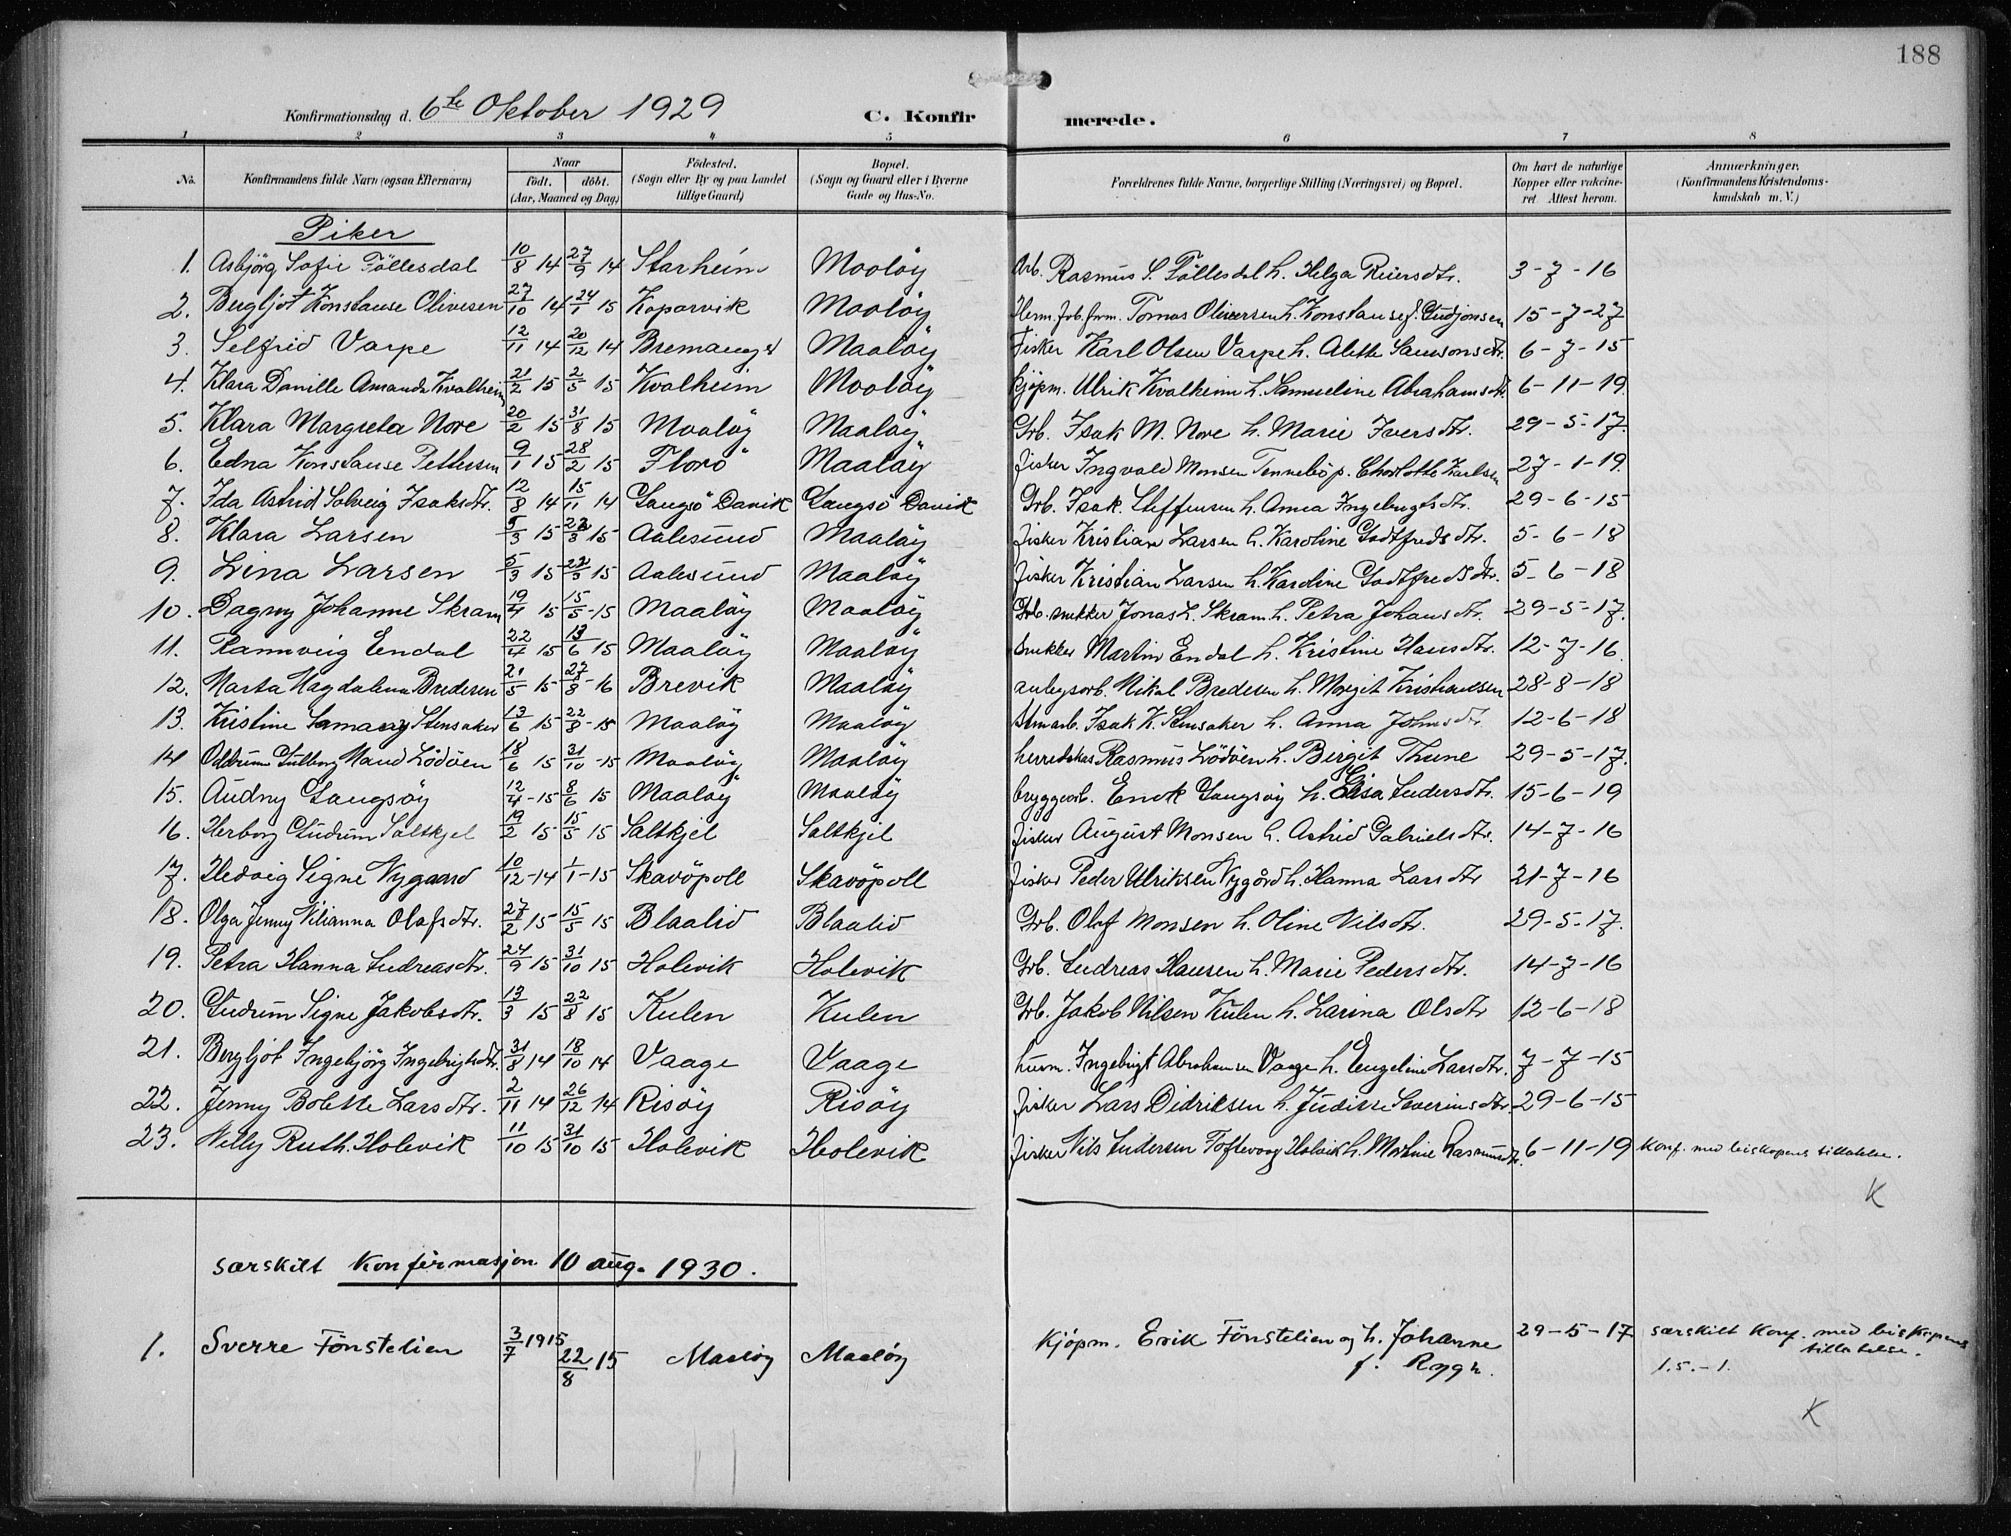 188
Konfirmationsdag d. 6te Oktober 1929 C. Konfirmerede.
1 2 3 4 5 6 7 8
No. Konfirmandens fulde Navn (ogsaa Efternavn) Naar födt. döbt. (Aar, Maaned og Dag) Födested. (Sogn eller By og paa Landet tillige Gaard) Bopæl. (Sogn og Gaard eller i Byerne Gade og Hus-No. Forældrenes fulde Navne, borgerlige Stilling (Næringsvei) og Bopæl. Om havt de naturlige Kopper eller vakcineret. Attest herom. Anmærkninger, (Konfirmandens Kristendomskundskab m. V.)
Piker
1. Asbjörg Sofie Föllesdal 10/8 14 27/9 14 Starheim Maalöy Arb. Rasmus S. Föllesdal h. Helga Reiersdtr. 3-7-16
2. Bergljot Konstanse Olivesen 27/10 14 24/1 15 Koparvik Maalöy Herm. fab. frm. Tomas Oliversen h. Konstanse f. Gudjonsen 15-7-27
3. Selfrid Varpe 12/11 14 20/12 14 Bremanger Maalöy Fisker Karl Olsen Varpe h. Alette Samsonsdtr. 6-7-15
4. Klara Danille Amanda Kvalheim 21/2 15 2/5 15 Kvalheim Maalöy kjöpm. Ulrik Kvalheim h. Samueline Abrahamsdtr. 6-11-19
5. Klara Margreta Nore 20/2 15 31/8 15 Maalöy Maalöy Grb. Isak M. Nore h. Marie Iversdtr. 29-5-17.
6. Edna Konstanse Pettersen 9/1 15 28/2 15 Florö Maalöy fisker Ingvald Monsen Tennebö p. Charlotte Karlsen 27-1-19.
7. Ida Astrid Solveig Isaksdtr. 12/8 14 15/11 14 Langsö Davik Langsö Davik Grb. Isak Steffensen h. Anna Ingebrigtsdtr. 29-6-15
8. Klara Larsen 5/3 15 22/3 15 Aalesund Maalöy fisker Kristian Larsen h. Karoline Godtfredsdtr. 5-6-18
9. Lina Larsen 5/3 15 22/3 15 Aalesund Maalöy fisker Kristian Larsen h. Karoline Godtfredsdtr. 5-6-18
10. Dagny Johanne Skram 19/4 15 15/5-15 Maalöy Maalöy Grb. snekker Jonas L. Skram h. Petra Johansdtr. 29-5-17.
11. Rannveig Endal 22/4 15 13/6 15 Maalöy Maalöy Snekker Martin Endal h. Kristine Hansdtr. 12-7-16.
12. Marta Magdalena Bredesen 21/5 15 27/8-16 Brevik Maalöy anlegsarb. Nikal Bredesen h. Margit Kristiansen 28-8-18
13. Kristine Samary Stensaker 13/6 15 22/8-15 Maalöy Maalöy Isak K. Stensaker h. Anna Johnsdtr. 12-6-18
14 Oddrun Gulborg Maud Lödöen 18/6 15 31/10-15 Maalöy Maalöy herredskas Rasmus Lödöen h. Birgit Thune 29-5-17.
15. Audny Langsöy 12/4-15 8/6 15 Maalöy Maalöy bryggearb. Enok Langsöy h. Elisa Andersdtr. 15-6-19
16. Herborg Gudrun Saltskjel 19/2 15 15/5 15 Saltkjel Saltkjel fisker August Monsen h. Astrid Gabrielsdtr. 14-7-16
17. Hedvig Signe Nygaard 10/12-14 1/1-15 Skavöpoll Skavöpoll fisker Peder Ulriksen Nygård h. Hanna Larsdtr 21-7-16
18. Olga Jenny Nilianna Olafsdtr. 27/2 15 15/5 15 Blaalid Blaalid Grb. Olaf Monsen h. Oline Nilsdtr. 29-5-17.
19. Petra Hanna Andreasdtr. 24/9 15 31/10 15 Holevik Holevik Grb. Andreas Hansen h. Marie Pedersdtr. 14-7-16
20. Gudrun Signe Jakobsdtr. 13/3 15 22/8 15 Kulen Kulen Grb. Jakob Nilsen Kulen h. Larina Olsdtr 12-6-18
21. Bergljot Ingebjörg Ingebrigtsdtr. 31/8 14 18/10 14 Vaage Vaage husm. Ingebrigt Abrahamsen Vaage h. Engeline Larsdtr. 7-7-15
22. Jenny Bolette Larsdtr. 2/11 14 26/12 14 Risöy Risöy fisker Lars Didriksen h. Judisse Severinsdtr 29-6-15
23. Nelly Ruth. Holevik 11/10 15 31/10 15 Holevik Holevik fisker Nils Andersen Toftevaag Holevik h. Martine Rasmusdtr. 6-11-19 Konf. med biskopens tillatelse.
K
særskilt Konfirmasjon 10 aug. 1930.
1. Sverre Fönstelien 3/7 1915 22/8 15 Maalöy Maalöy Kjöpm. Erik Fönstelien og h. Johanne f. Rygg. 29-5-17 særskilt Konf. med biskopens tillatelse.
1.5.-1.
K